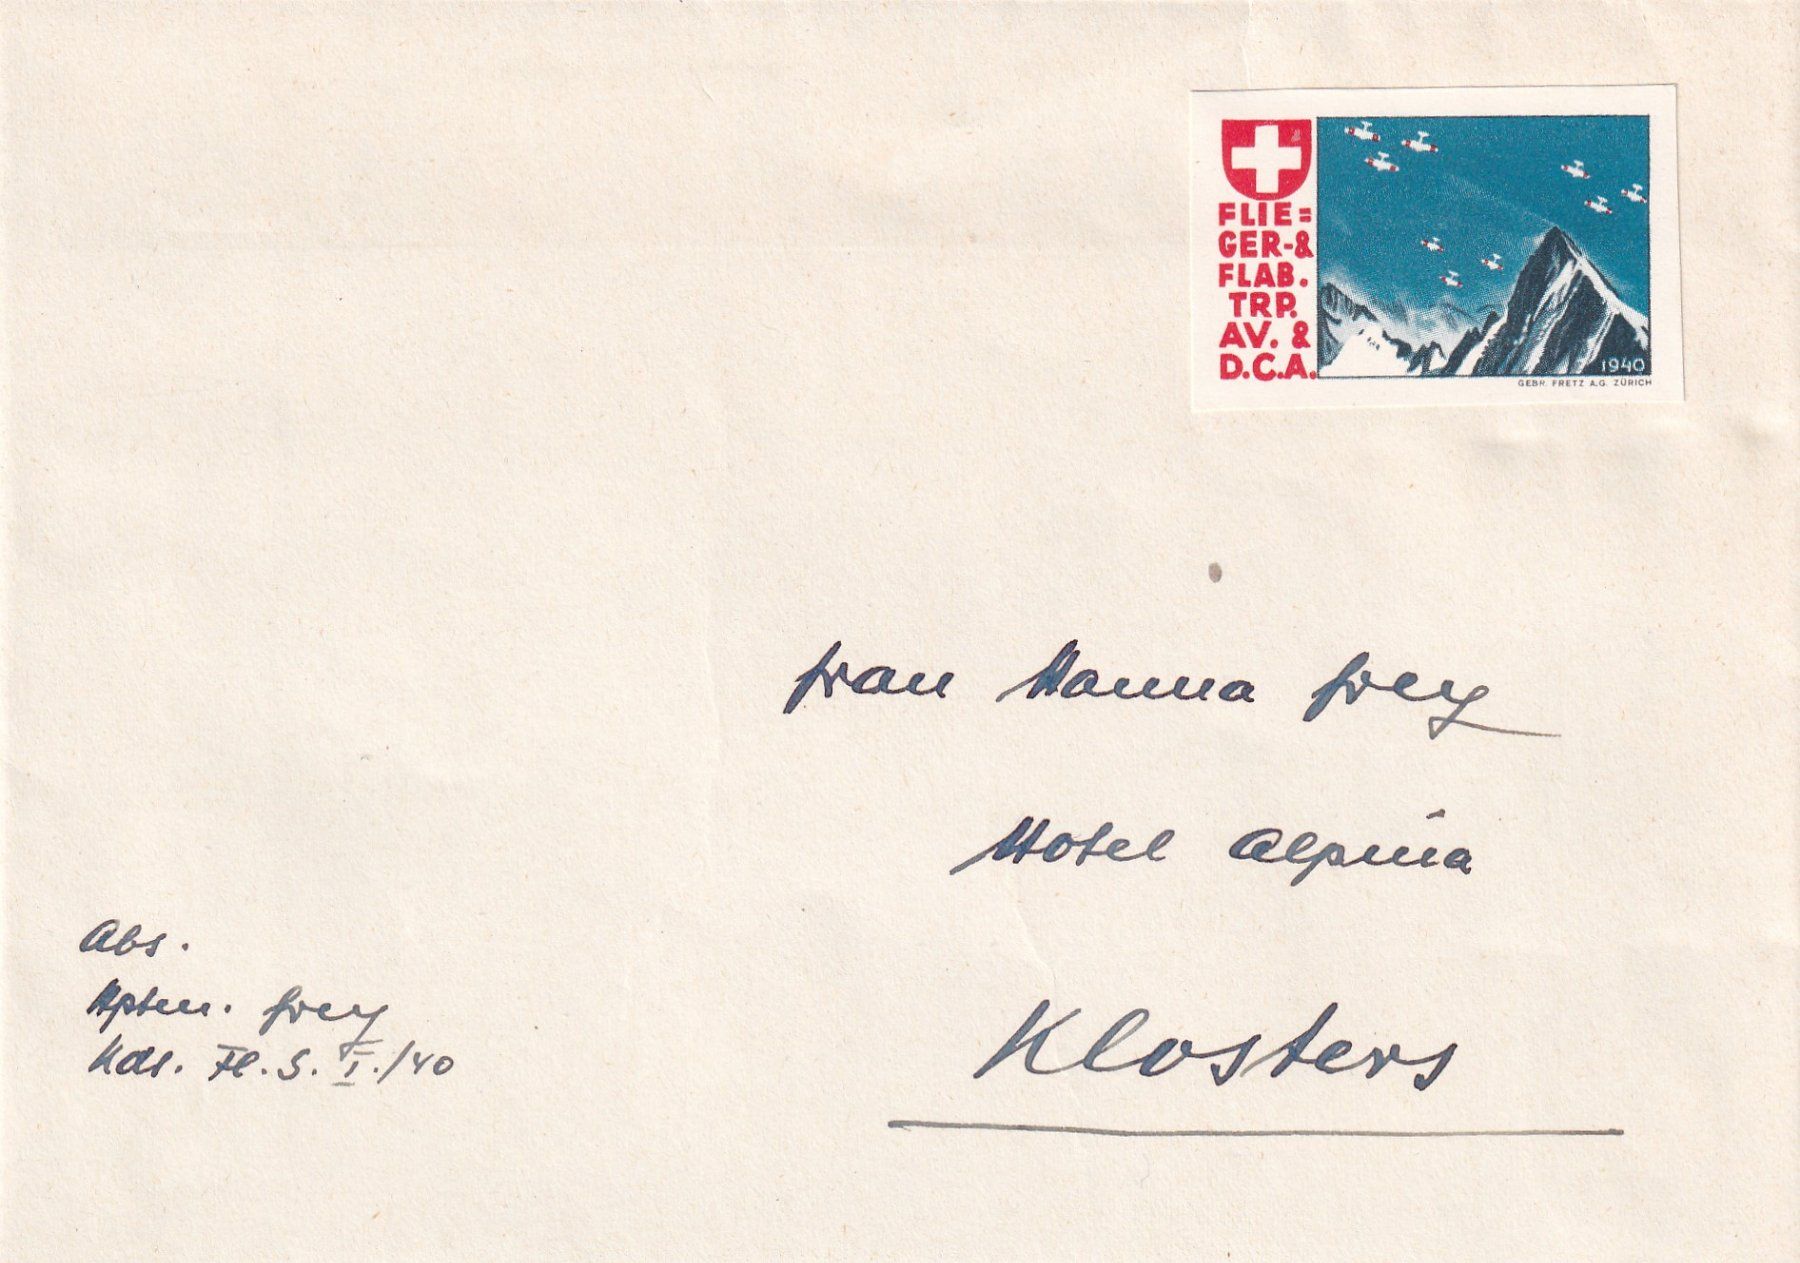 FLIE=
GER-&
FLAB.
TRP.
AV. &
D.C.A.
1940
GEBR. FRETZ A.G. ZÜRICH
Frau Hanna Frey
Hotel Alpina
Klosters
Abs.
Hptm. Frey
Kdt. Fl. S. I./40